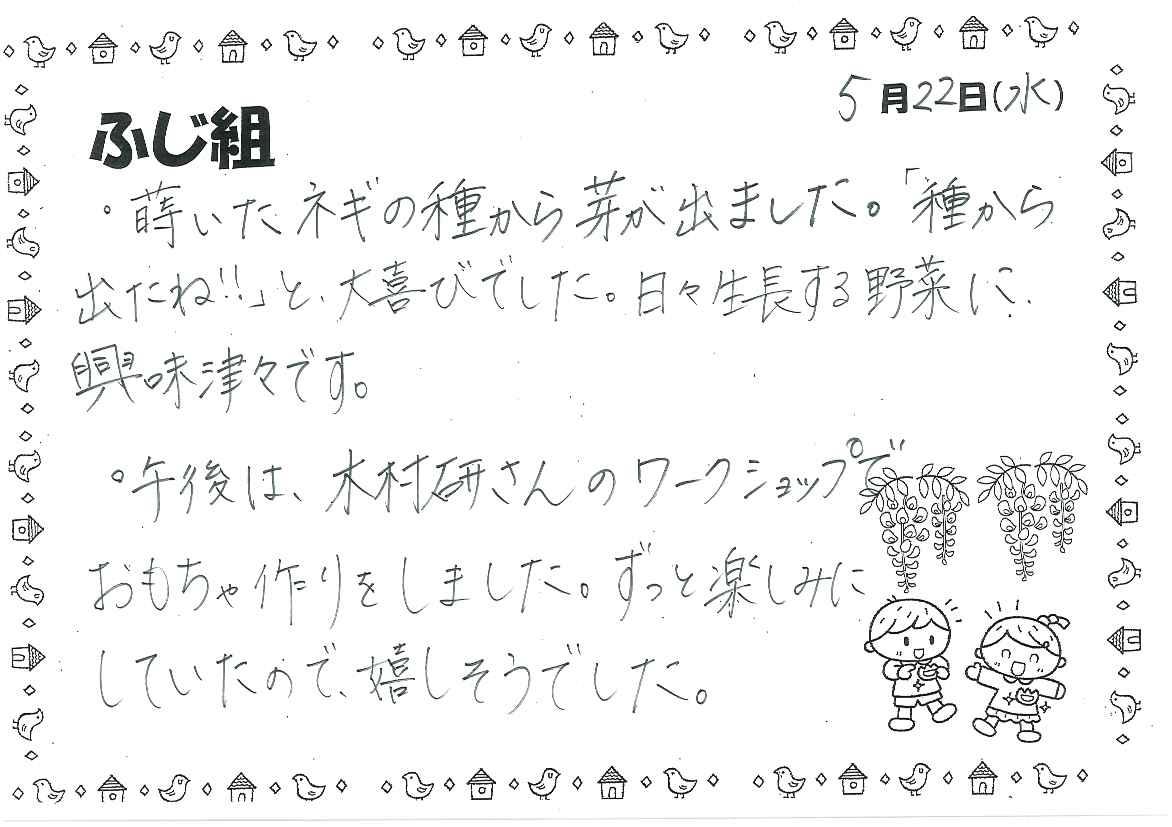 5月22日(水)
ふじ組
・蒔いたネギの種から芽が出ました。「種から
出たね!!」と、大喜びでした。日々生長する野菜に、
興味津々です。
・午後は、木村研さんのワークショップで
おもちゃ作りをしました。ずっと楽しみに
していたので、嬉しそうでした。